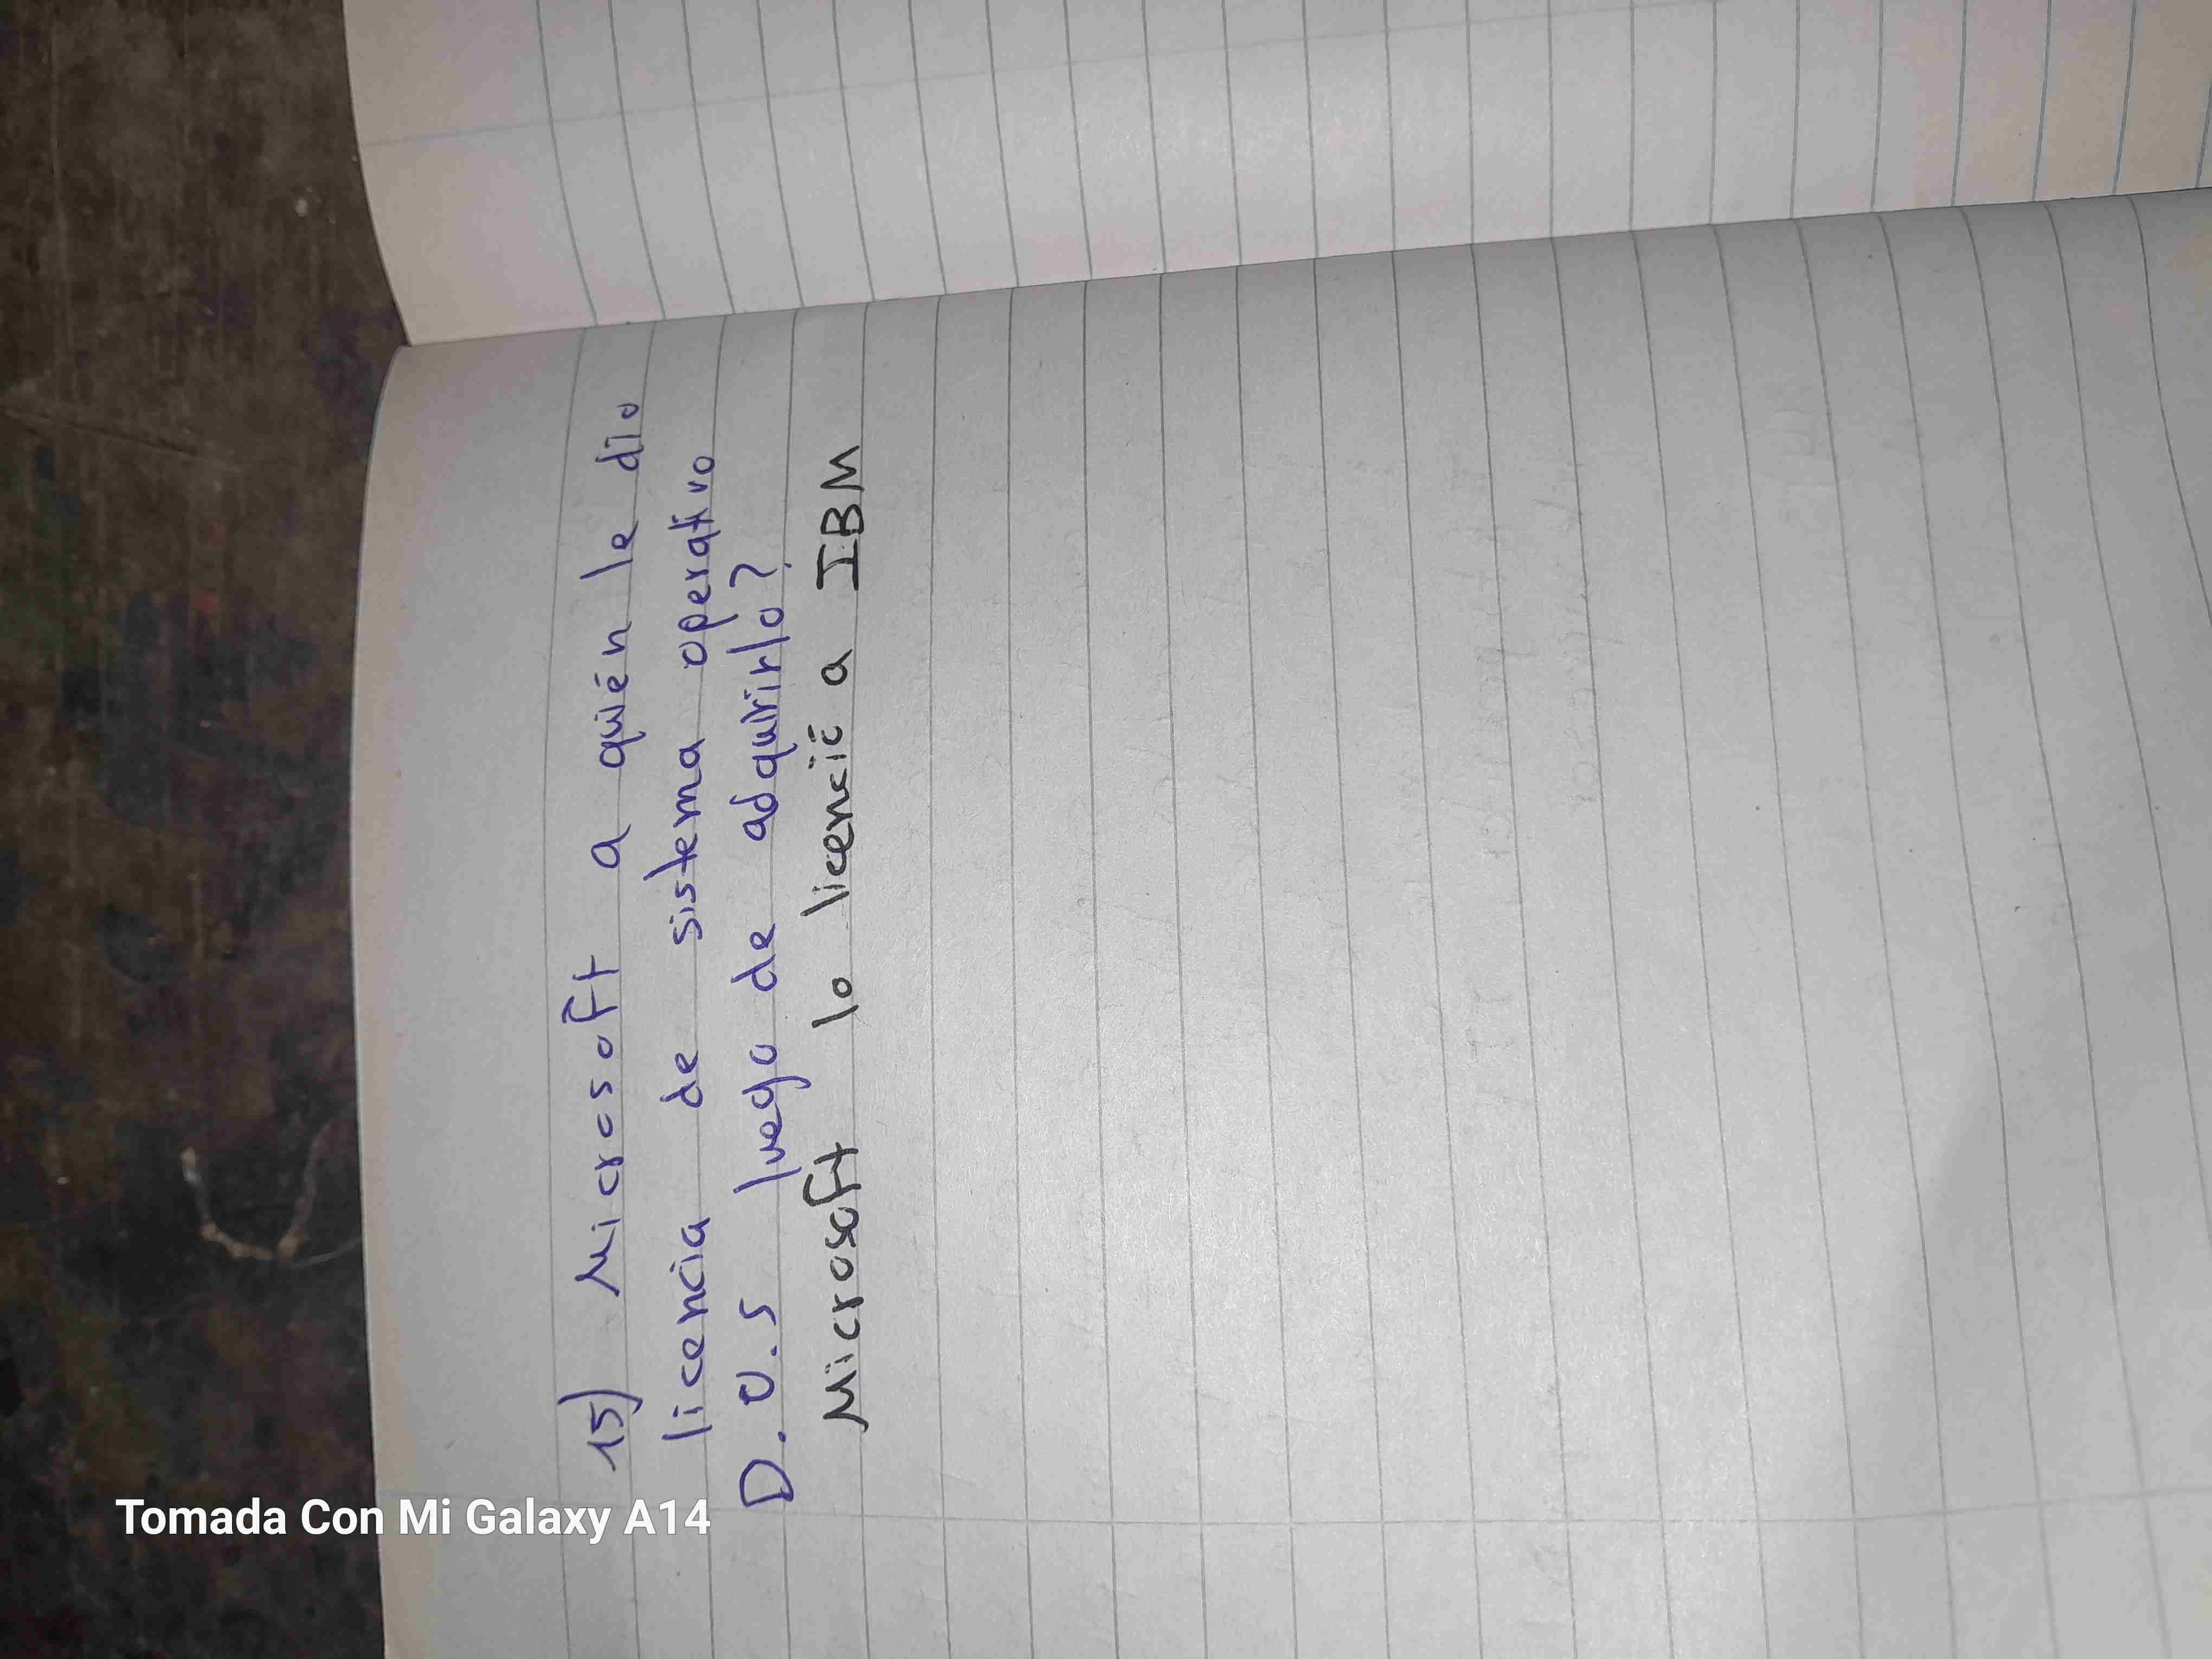 15) Microsoft a quién le dio
licencia de sistema operativo
D.O.S luego de adquirirlo?
Microsoft lo licenció a IBM
Tomada Con Mi Galaxy A14